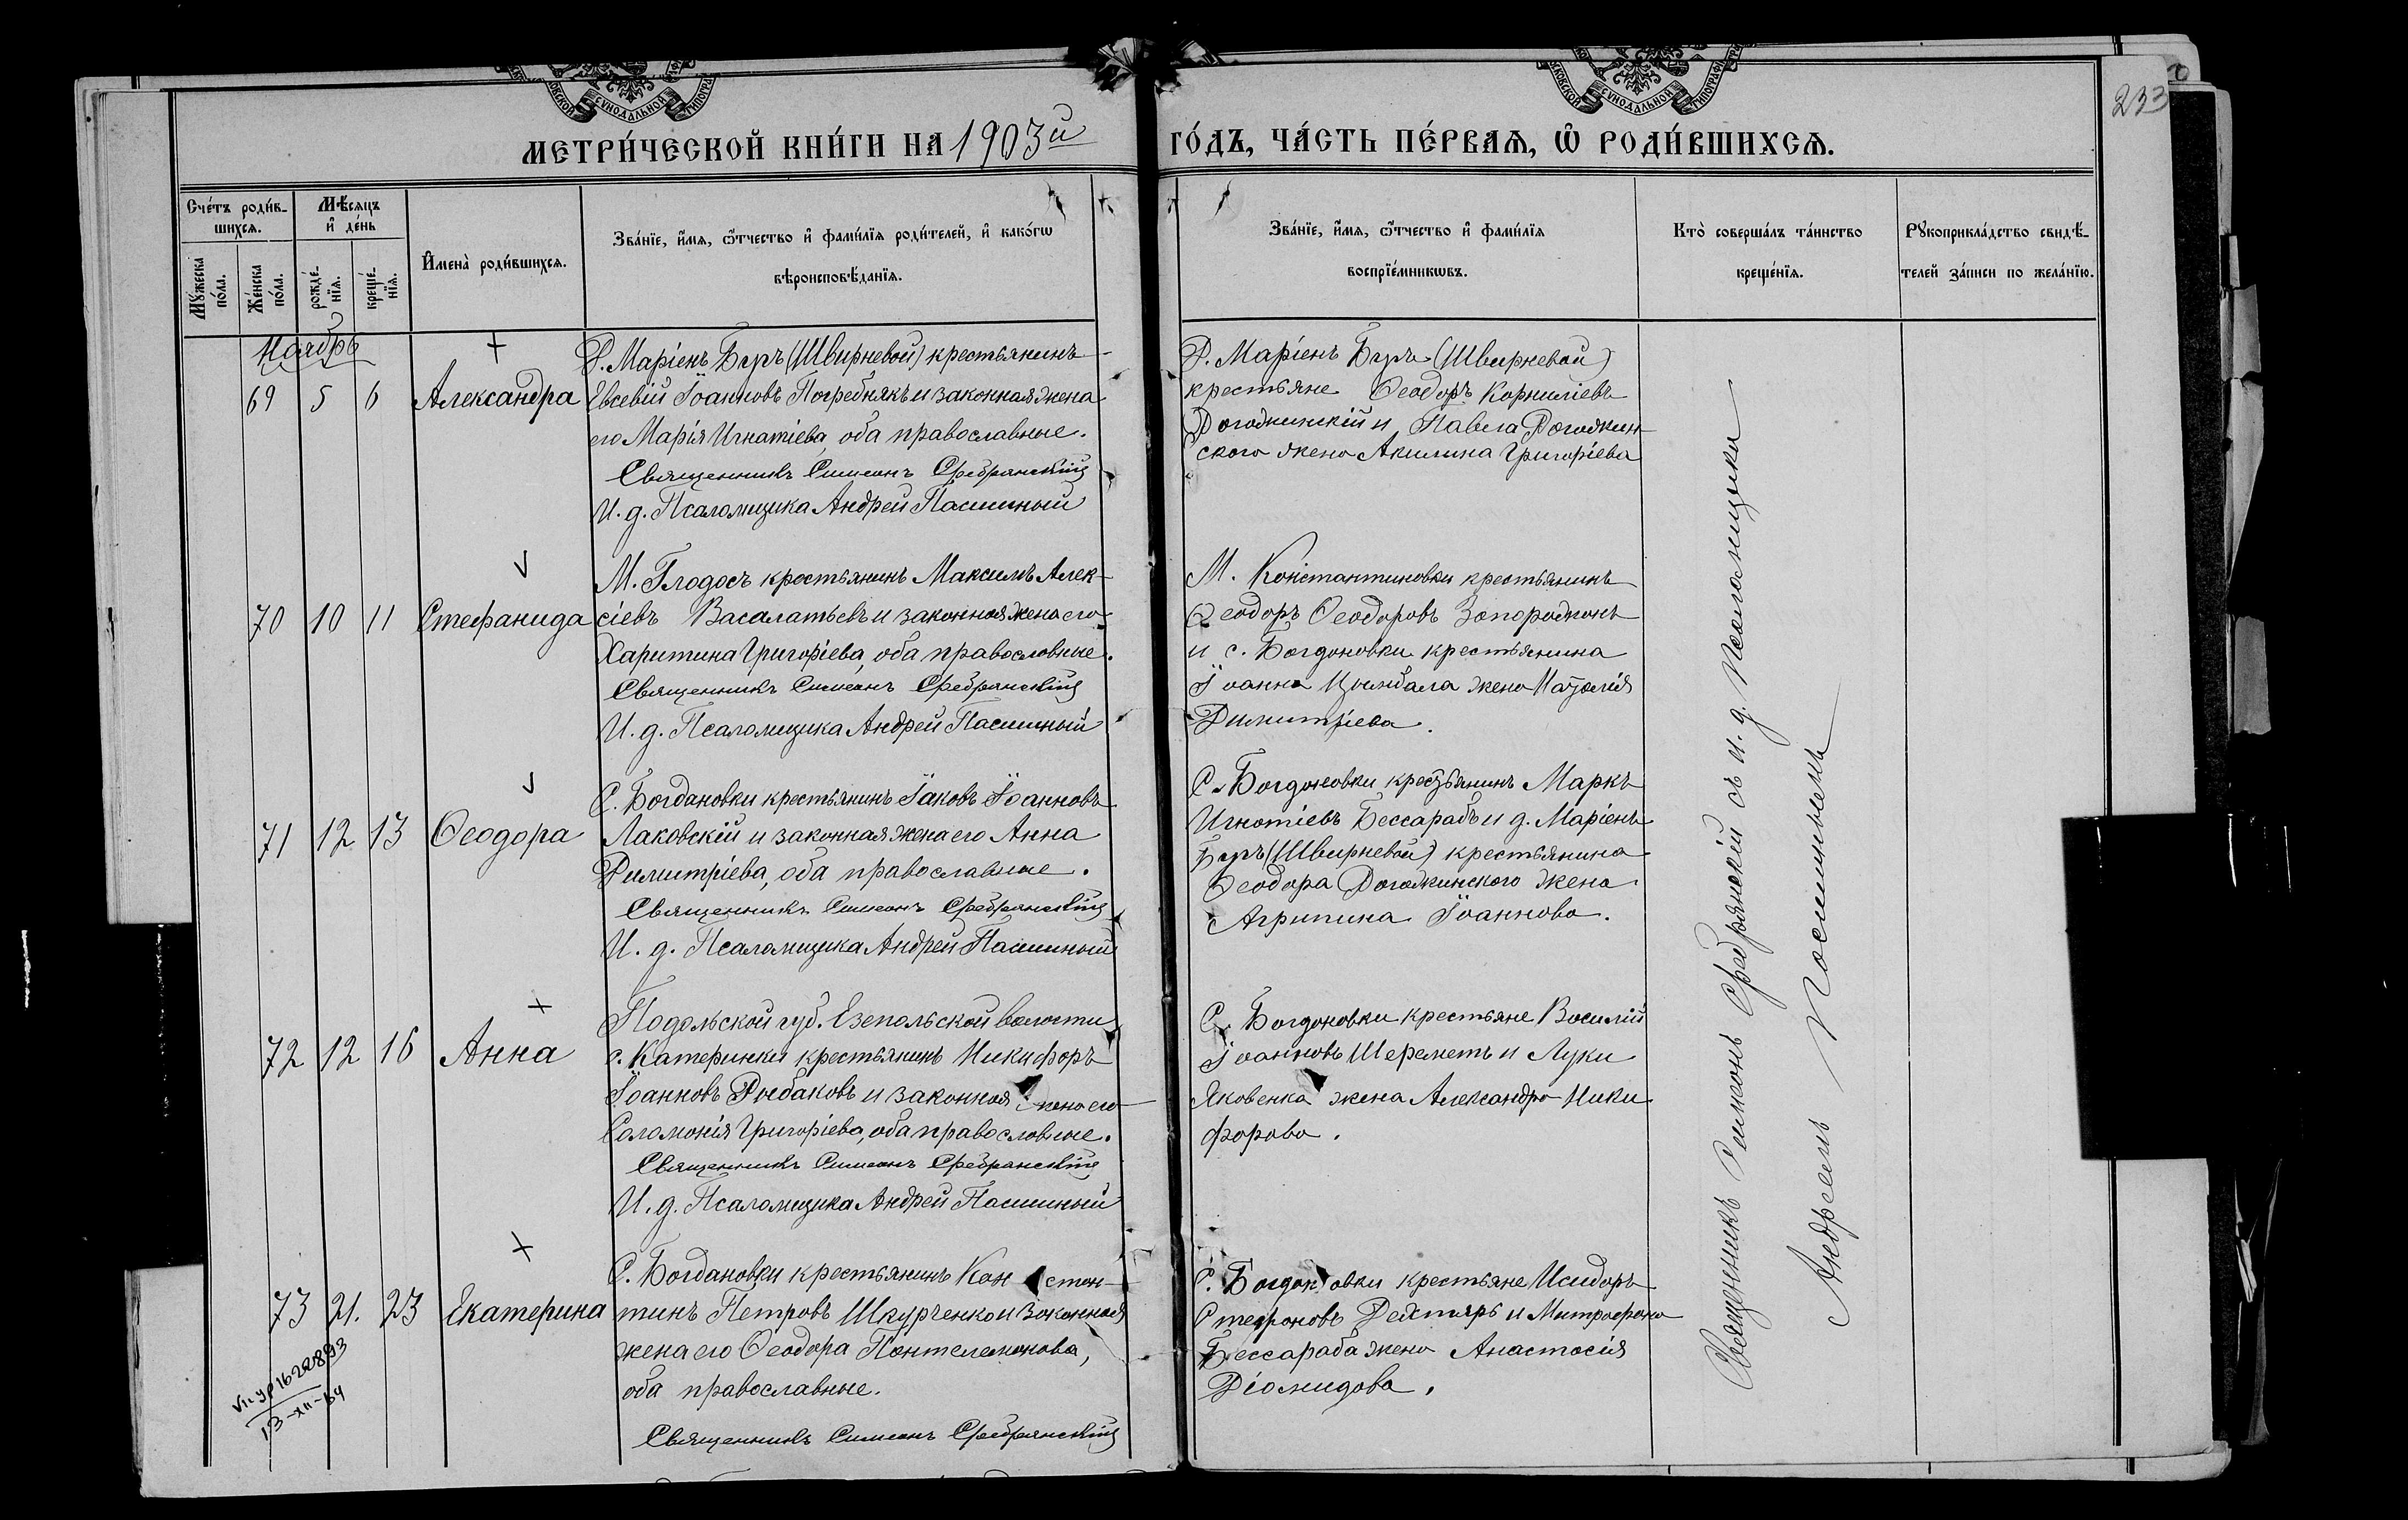 МЕТРИ́ЧЕСКОЙ КНИ́ГИ НА 1903й ГО́ДЪ, ЧА́СТЬ ПЕ́РВАѦ, Ѡ҆ РОДИ́ВШИХСѦ.
233
Сче́тъ роди́в-
шихсѧ.
Мѣ́сѧцъ
и҆ де́нь
Мꙋ́жеска
по́ла.
Же́нска
по́ла.
рожде́-
нїѧ.
креще́-
нїѧ.
И҆мена̀ роди́вшихсѧ.
Зва́нїе, и҆́мѧ, ѻ҆́тчество и҆ фами́лїѧ роди́телей, и҆ како́гѡ
вѣроисповѣ́данїѧ.
Зва́нїе, и҆́мѧ, ѻ҆́тчество и҆ фами́лїѧ
воспрїе́мникѡвъ.
Кто̀ соверша́лъ та́инство
креще́нїѧ.
Рꙋкоприкла́дство свидѣ́-
телей за́писи по жела́нїю.
Ноябрь
69 5 6 Александра
Д. Маріенъ Буръ (Швирневой) крестьянинъ
Евсевій Іоанновъ Погребнякъ и законная жена
его Марія Игнатіева, оба православные.
Священникъ Симеонъ Сребрянскій
И. д. Псаломщика Андрей Пасишный
Д. Маріенъ Буръ (Швирневой)
крестьяне Ѳеодоръ Корниліевъ
Догодкинскій и Павла Догодкин-
ского жена Акилина Григоріева
70 10 11 Стефанида
М. Глодосъ крестьянинъ Максимъ Алек-
сіевъ Васалатьевъ и законная жена его
Харитина Григоріева, оба православные.
Священникъ Симеонъ Сребрянскій
И. д. Псаломщика Андрей Пасишный
М. Константиновки крестьянинъ
Ѳеодоръ Ѳеодоровъ Запорожанъ
и с. Богдановки крестьянина
Іоанна Цымбала жена Наталія
Димитріева.
71 12 13 Ѳеодора
С. Богдановки крестьянинъ Іаковъ Іоанновъ
Лаковскій и законная жена его Анна
Димитріева, оба православные.
Священникъ Симеонъ Сребрянскій
И. д. Псаломщика Андрей Пасишный
С. Богдановки крестьянинъ Маркъ
Игнатіевъ Бессарабъ и д. Маріенъ
Буръ (Швирневой) крестьянина
Ѳеодора Догодкинского жена
Агрипина Іоаннова.
72 12 16 Анна
Подольской губ. Езепольской волости
с. Катеринки крестьянинъ Никифоръ
Іоанновъ Рыбаковъ и законная жена его
Соломонія Григоріева, оба православные.
Священникъ Симеонъ Сребрянскій
И. д. Псаломщика Андрей Пасишный
С. Богдановки крестьяне Василій
Іоанновъ Шереметъ и Луки
Яковенка жена Александра Ники
форова.
73 21. 23 Екатерина
С. Богдановки крестьянинъ Кон стан-
тинъ Петровъ Шкурченко и законная
жена его Ѳеодора Пантелеимонова,
оба православные.
Священникъ Симеонъ Сребрянскій
С. Богдановки крестьяне Исидоръ
Стефановъ Дейтярь и Митрофана
Бессараба жена Анастасія
Діомидова.
Священникъ Симеонъ Сребрянскій съ и. д. Псаломщика
Андреемъ Пасишнымъ
13-XII-64